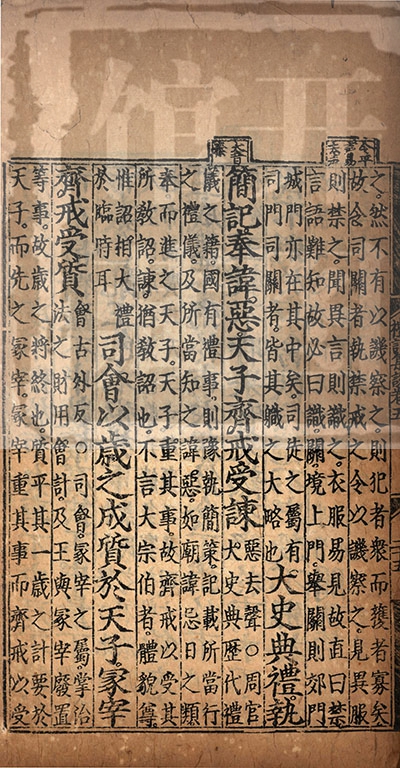 之然不有以譏察之則犯者衆而獲者寡矣
故令司關者執禁戒之令以譏察之見異服
則禁之聞異言則譏之衣服易見故直曰禁
言語難知故必曰譏關境上門舉關則郊門
城門亦在其中矣司徒之屬有
司門司關者皆其職之大略也
大史典禮執
簡記奉諱惡天子齊戒受諫
惡去聲○周官
大史典歷代禮
儀之籍國有禮事則豫執簡策記載所當行
之禮儀及所當知之諱惡如廟諱忌日之類
奉而進之天子天子重其事故齊戒以受其
所教詔諫猶教詔也不言大宗伯者體貌尊
惟詔相大禮
於臨時耳
司會以歲之成質於天子冢宰
齊戒受質
會古外反○司會冢宰之屬掌治
法之財用會計及王與冢宰廢置
等事故歲之將終也質平其一歲之計要於
天子而先之冢宰冢宰重其事而齊戒以受